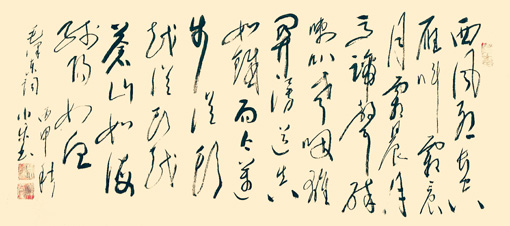 西风烈长空
雁叫霜晨
月霜晨月
马蹄声碎
喇叭声咽雄
关漫道真
如铁而今迈
步从头
越从头越
苍山如海
残阳如血
毛泽东词
丙申秋
书